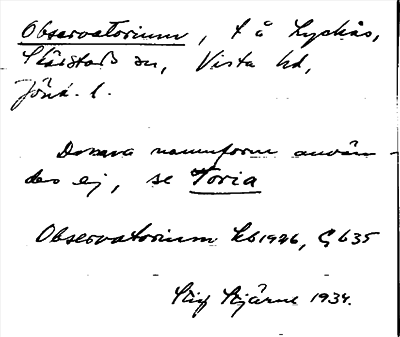 Observatorium, t å Lyckås,
Skärstad sn, Vista hd,
Jönk. l.
Denna namnform använ-
des ej, se Toria
Observatorium Eb 1926, G b35
Stig Stjärne 1934.